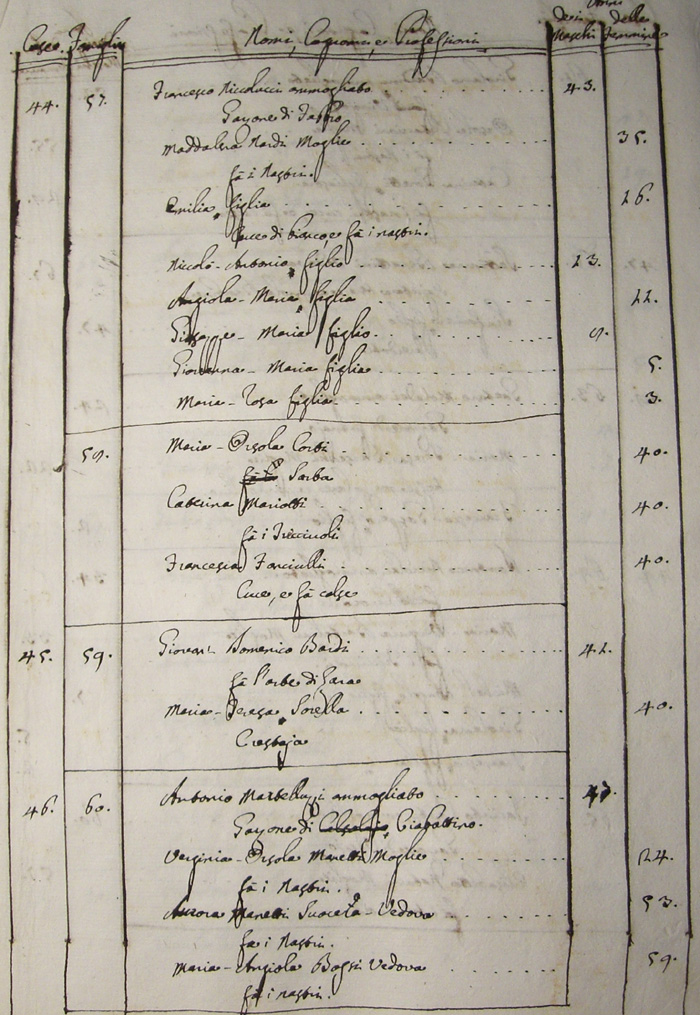 Case. Famiglie Nomi, Cognomi, e Professioni Anni
de i Maschi delle Femmine
44. 57. Francesco Nicolucci ammogliato 43.
Garzone di Fabbro
Maddalena Nardi Moglie 35.
fà i Nastri.
Emilia figlia 16.
Cuce di bianco, e fà i nastri.
Nicolò-Antonio figlio 13.
Angiola-Maria figlia 11.
Giuseppe-Maria figlio 9.
Giovanna-Maria figlia 5.
Maria-Rosa figlia 3.
58. Maria-Orsola Corsi 40.
Sarta
Caterina Mariotti 40.
fà i
Francesca Fanciulli 40.
Cuce, e fà calze
45. 59. Giovan Domenico Bardi 42.
fà l'arte di
Maria-Teresa Sorella 40.
46. 60. Antonio Martelluzzi ammogliato 43.
Garzone di Calzolajo, Ciabattino.
Verginia-Orsola Manetti Moglie 24.
fà i Nastri.
Aurora Manetti Suocera-Vedova 53.
fa i Nastri.
Maria-Angiola Vedova 59.
fà i nastri.